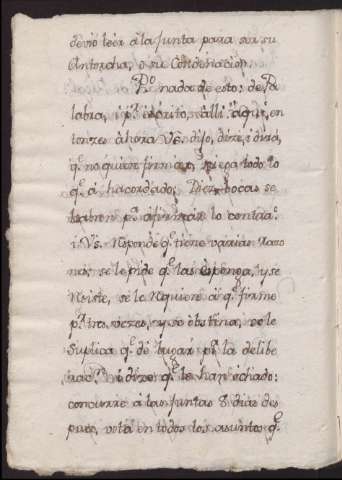 devió leer á la Junta para ser su
Antorcha, o su Condenacion.
Po nada de esto: de Pa
labra, i pr escrito, i alli, aqui, en
tonzes ahora Us. dijo, dize, i dirá,
q.e no quiere firmar, q.e era todo lo
q.e á hacordado; Diez bocas se
abren pa afirmar lo contra.o
i Us. Responde q.e tiene varias Razo
nes, se le pide q.e las exponga, y se
Resiste, se le Requiere á q.e firme
pr tres vezes, y se obstina, se le
Suplica q.e dé lugar pa la delibe
raz.n i dize q.e le han echado:
concurre á las Juntas 8 dias des
pues, vota en todos los asuntos q.e